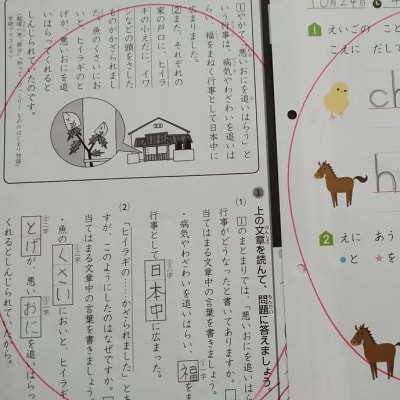 1 やがて、「悪いおにを追いはらう」と
いう行事は、病気やわざわいを追いは
らい、福をまねく行事として日本中に
広まりました。
2 また、それぞれの
家の戸口に、ヒイラ
ギの小えだに、イワ
シなどの頭をさした
ものがかざられまし
た。魚のくさいにお
いと、ヒイラギのと
げが、悪いおにを追
いはらってくれると
しんじられていたのです。
1 上の文章を読んで、問題に答えましょう。
(1) 1のまとまりでは、「悪いおにを追いはら
行事がどうなったと書いてありますか。
当てはまる文章中の言葉を書きましょう。
・病気やわざわいを追いはらい、福を
行事として日本中に広まった。
(2) 「ヒイラギの……かざられました」とあ
すが、このようにしたのはなぜですか。
当てはまる文章中の言葉を書きましょう。
・魚のくさいにおいと、ヒイラギ
とげが、悪いおにを追いはらっ
くれるとしんじられていたから。
10月24日
1 えいごの こと
こえに だして
ch
h
2 えに あう
●と ★を